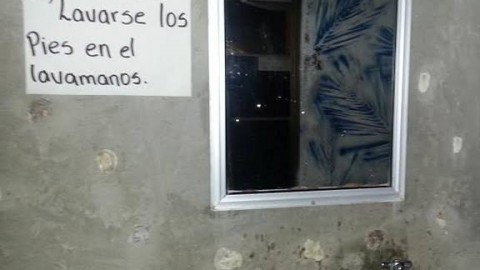 Lavarse los
Pies en el
lavamanos.